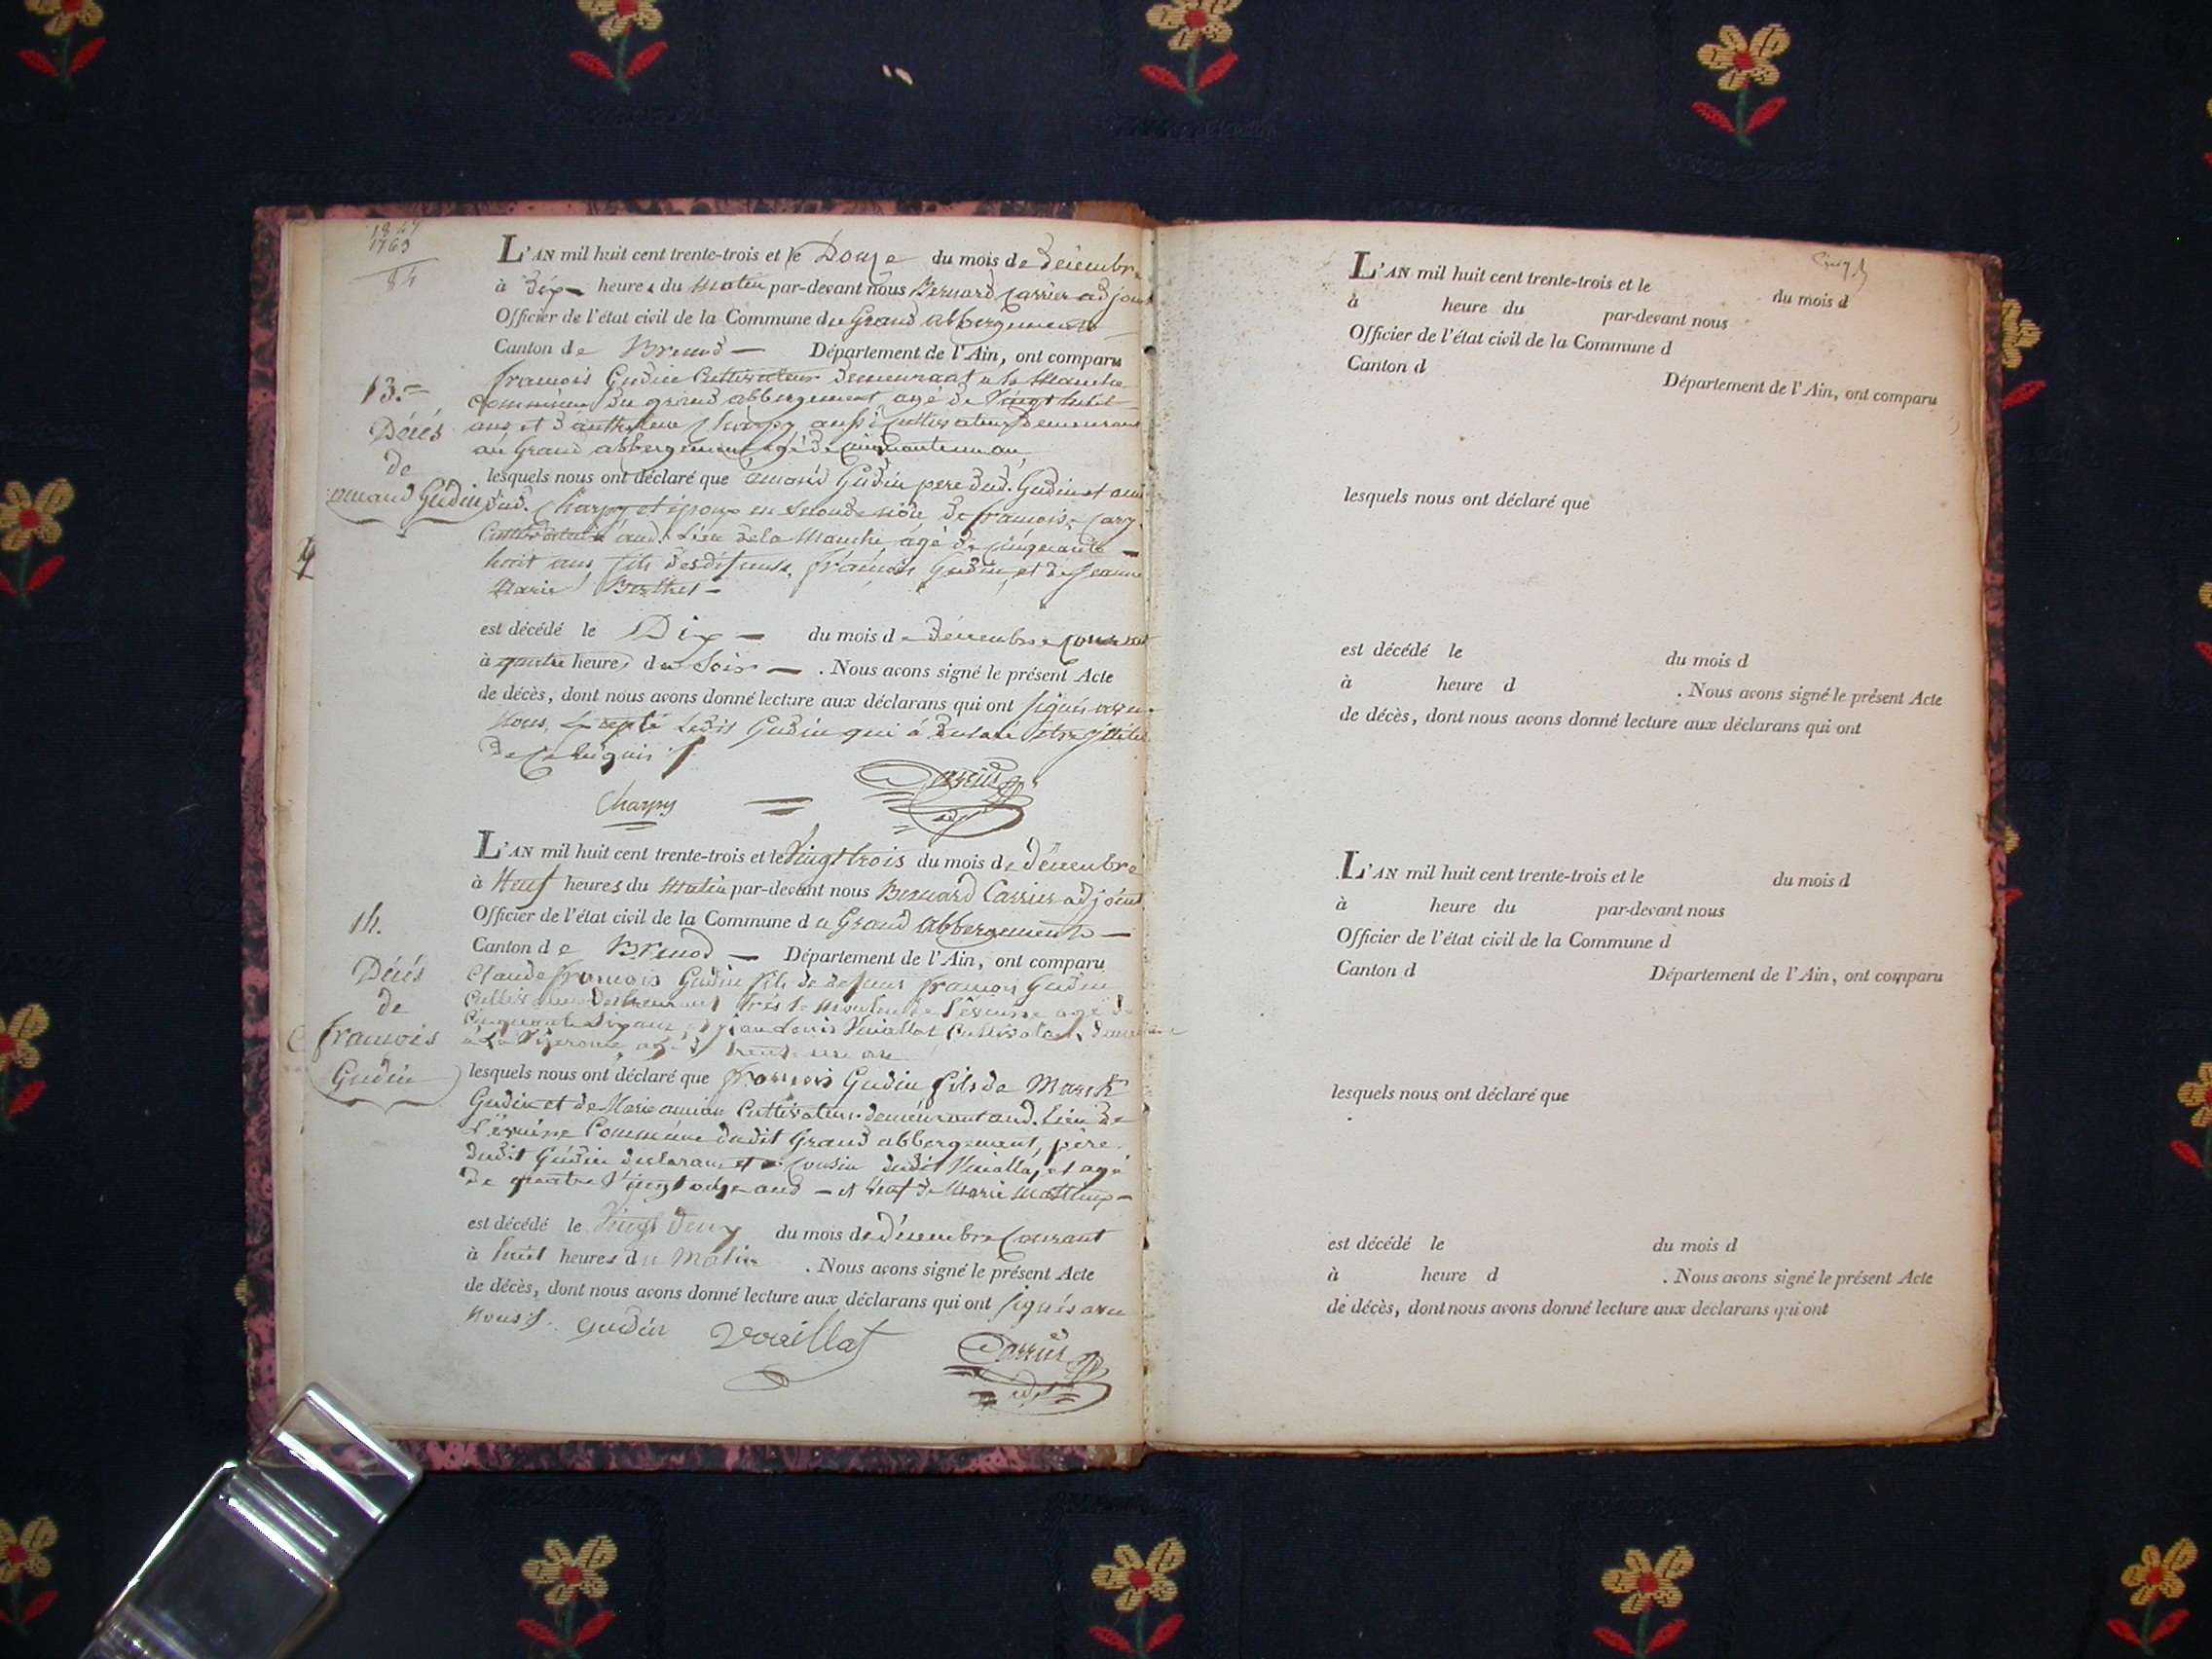 1763
84
L'AN mil huit cent trente-trois et le Douze du mois de Décembre
à Dix heures du Matin par-devant nous Bernard Carrier adjoint
Officier de l'état civil de la Commune du Grand abbergement
Canton de Brenod — Département de l'Ain, ont comparu
francois Gudin Cultivateur demeurant a la Manche
Commune du grand abbergement agé de Vingt huit
ans et d'anthelme Charpy aussi Cultivateur demeurant
au Grand abbergement agé de Cinquante un an
13.
Décés
de
amand Gudin
lesquels nous ont déclaré que amand Gudin pere dud. Gudin et ami
dud. Charpy et époux en seconde de francoise
Cultivateur aud. Lieu de la Manche agé de Cinquante —
huit ans fils des défunts francois Gudin et de Jeanne
Marie Berthet —
est décédé le Dix — du mois de décembre Courant
à quatre heures du Soir — . Nous avons signé le présent Acte
de décès, dont nous avons donné lecture aux déclarans qui ont signés avec
nous, Ledit Gudin qui á
de Ce requis
Charpy
Carrier
adjt
L'AN mil huit cent trente-trois et le Vingt trois du mois de Décembre
à Neuf heures du Matin par-devant nous Bernard Carrier adjoint
Officier de l'état civil de la Commune du Grand abbergement —
Canton de Brenod — Département de l'Ain, ont comparu
Claude francois Gudin fils de defunt francois Gudin
Cultivateur Demeurant agé de
Cinquante ans, et jean Louis Vuiallat Cultivateur demeurant
agé de trente un ans
14.
Décés
de
francois
Gudin
lesquels nous ont déclaré que francois Gudin fils de
Gudin et de Marie Cultivateur demeurant aud. Lieu de
Commune dudit Grand abbergement, père
dudit Gudin declarant et Cousin dudit Vuiallat, et agé
de quatre Vingt onze ans — et Veuf de Marie
est décédé le Vingt Deux du mois de Décembre Courant
à huit heures du Matin . Nous avons signé le présent Acte
de décès, dont nous avons donné lecture aux déclarans qui ont signés avec
nous
Gudin
Vuaillat
Carrier
adjt
L'AN mil huit cent trente-trois et le du mois d
à heure du par-devant nous
Officier de l'état civil de la Commune d
Canton d Département de l'Ain, ont comparu
lesquels nous ont déclaré que
est décédé le du mois d
à heure d . Nous avons signé le présent Acte
de décès, dont nous avons donné lecture aux déclarans qui ont
L'AN mil huit cent trente-trois et le du mois d
à heure du par-devant nous
Officier de l'état civil de la Commune d
Canton d Département de l'Ain, ont comparu
lesquels nous ont déclaré que
est décédé le du mois d
à heure d . Nous avons signé le présent Acte
de décès, dont nous avons donné lecture aux déclarans qui ont